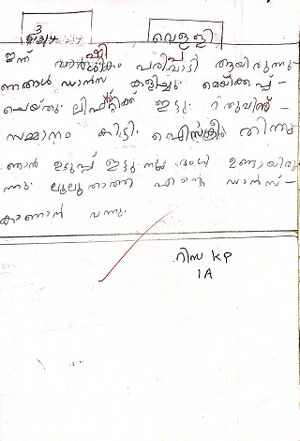 വെള്ളി
ഇന്ന് വാർഷികം പരിപാടി ആയിരുന്നു
ഞങ്ങൾ ഡാൻസ് കളിച്ചു. മെയ്ക്കപ്പ് -
ചെയ്തു. ലിപ്സ്റ്റിക്ക് ഇട്ടു.
സമ്മാനം കിട്ടി. ഐസ്ക്രീം തിന്നു
ഞാൻ ഉടുപ്പ് ഇട്ടു നല്ല ഭംഗി ഉണ്ടായിരു
ന്നു. ലുലു താത്ത എന്റെ ഡാൻസ് -
കാണാൻ വന്നു.
റിസ KP
1A